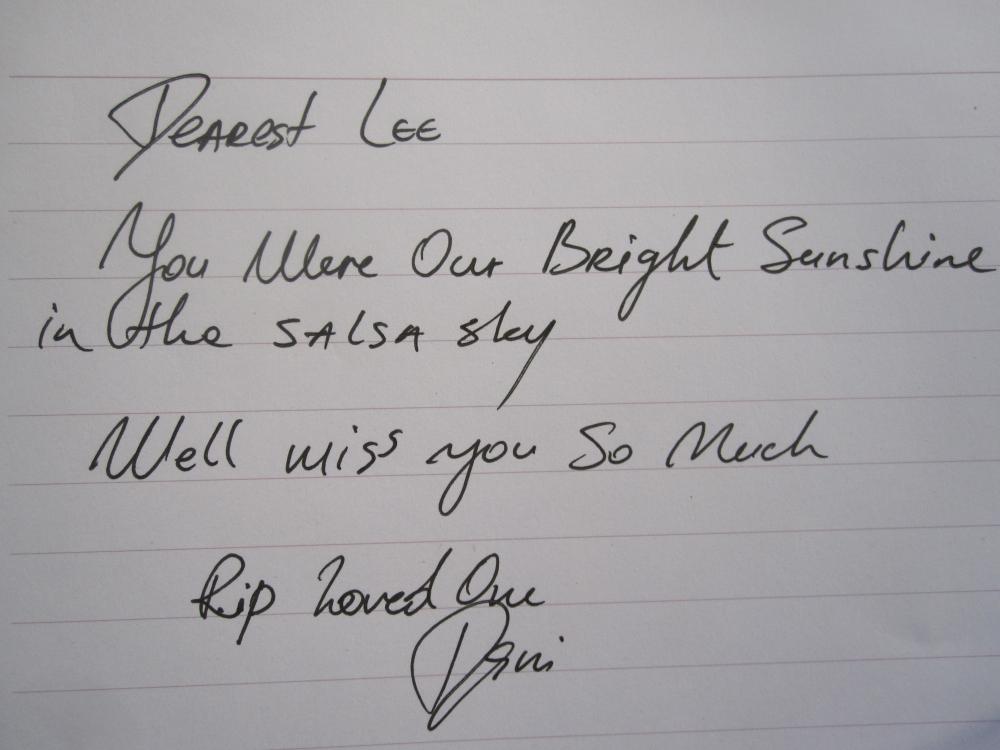 Dearest Lee
You Were Our Bright Sunshine
in the SALSA sky
Well miss you So Much
Rip Loved One